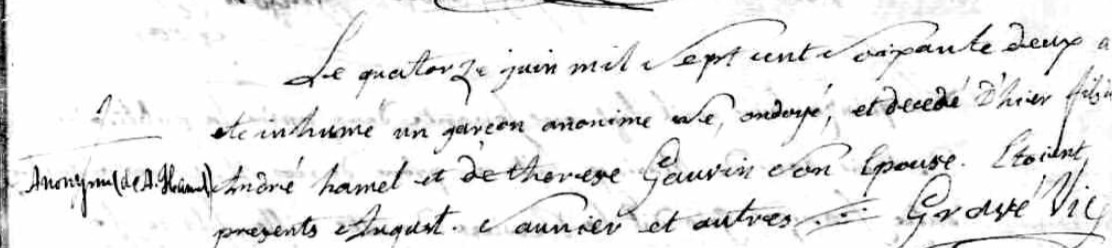 Le quatorze juin mil Sept cent Soixante deux a
ete inhumé un garçon anonime né, ondoyé, et decedé d'hier fils
Anonyme (de A. Hamel) André hamel et de therese Gauvin Son Epouse. Etoient
presents August. Saunier et autres